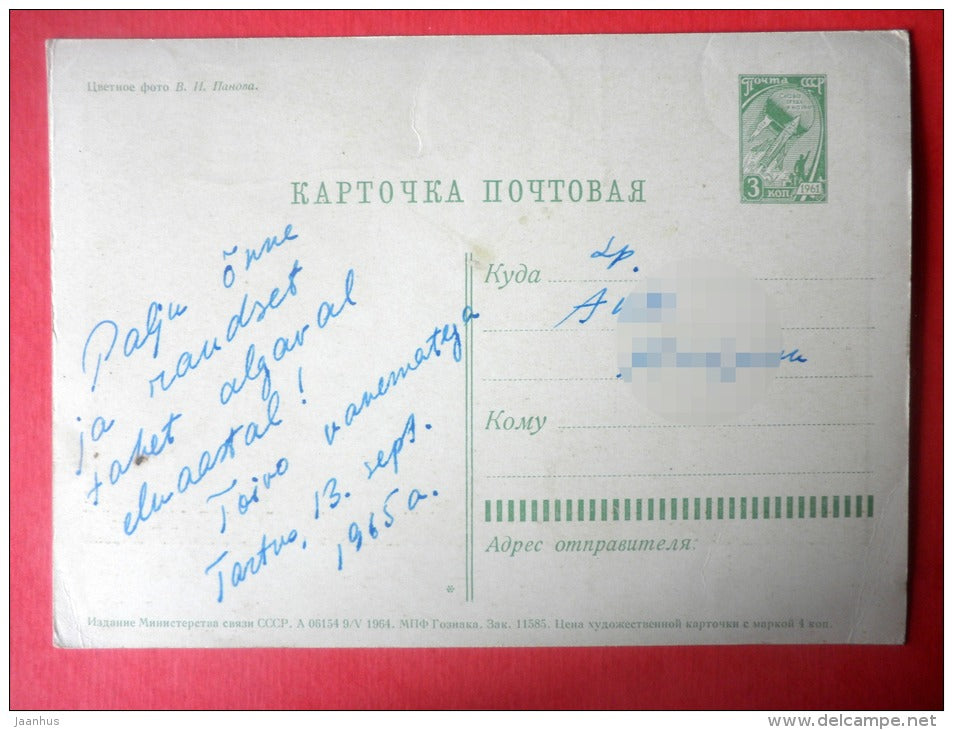 Цветное фото В. И. Панова.
Почта СССР
3 коп 1961
КАРТОЧКА ПОЧТОВАЯ
Palju õnne
ja raudset
tahet algaval
eluaastal!
Toivo vanematega
Tartus, 13. sept.
1965 a.
Куда
Lp.
Кому
Адрес отправителя:
*
Издание Министерства связи СССР. А 06154 9/V 1964. МПФ Гознака. Зак. 11585. Цена художественной карточки с маркой 4 коп.
Jaanhus
delcampe.net